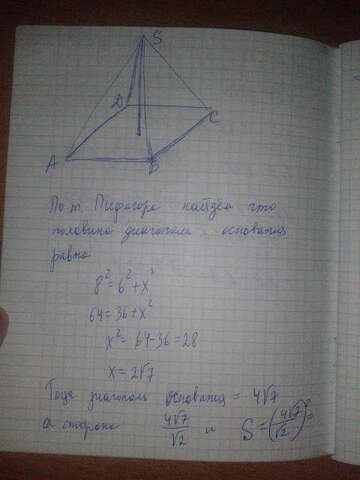 S
D
C
A
B
По т. Пифагора найдём что
половина диагонали основания
равна
8² = 6² + x²
64 = 36 + x²
x² = 64 - 36 = 28
x = 2√7
Тогда диагональ основания = 4√7
а сторона 4√7/√2 и S = (4√7/√2)² =